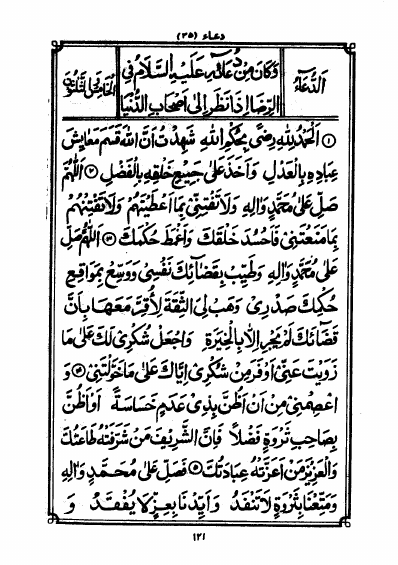 دعاء (٣٥)
الدُّعَاءُ
وَكَانَ مِنْ دُعَائِهِ عَلَيْهِ السَّلَامُ فِي
الرِّضَا إِذَا نَظَرَ إِلَىٰ أَصْحَابِ الدُّنْيَا
الْخَامِسُ وَالثَّلٰثُونَ
① اَلْحَمْدُ لِلّٰهِ رِضًى بِحُكْمِ اللّٰهِ شَهِدْتُ اَنَّ اللّٰهَ قَسَمَ مَعَايِشَ
عِبَادِهٖ بِالْعَدْلِ وَاَخَذَ عَلٰى جَمِيْعِ خَلْقِهٖ بِالْفَضْلِ ② اَللّٰهُمَّ
صَلِّ عَلٰى مُحَمَّدٍ وَّاٰلِهٖ وَلَا تَفْتِنِّيْ بِمَا اَعْطَيْتَهُمْ وَلَا تَفْتِنْهُمْ
بِمَا مَنَعْتَنِيْ فَاَحْسُدَ خَلْقَكَ وَاَغْمِطَ حُكْمَكَ ③ اَللّٰهُمَّ صَلِّ
عَلٰى مُحَمَّدٍ وَّاٰلِهٖ وَطَيِّبْ بِقَضَائِكَ نَفْسِيْ وَوَسِّعْ بِمَوَاقِعِ
حُكْمِكَ صَدْرِيْ وَهَبْ لِيَ الثِّقَةَ لِاُقِرَّ مَعَهَا بِاَنَّ
قَضَائَكَ لَمْ يَجْرِ اِلَّا بِالْخِيَرَةِ وَاجْعَلْ شُكْرِيْ لَكَ عَلٰى مَا
زَوَيْتَ عَنِّيْ اَوْفَرَ مِنْ شُكْرِيْ اِيَّاكَ عَلٰى مَا خَوَّلْتَنِيْ ④ وَ
اعْصِمْنِيْ مِنْ اَنْ اَظُنَّ بِذِيْ عَدَمٍ خَسَاسَةً اَوْ اَظُنَّ
بِصَاحِبِ ثَرْوَةٍ فَضْلًا فَاِنَّ الشَّرِيْفَ مَنْ شَرَّفَتْهُ طَاعَتُكَ
وَالْعَزِيْزَ مَنْ اَعَزَّتْهُ عِبَادَتُكَ ⑤ فَصَلِّ عَلٰى مُحَمَّدٍ وَّاٰلِهٖ
وَمَتِّعْنَا بِثَرْوَةٍ لَا تَنْفَدُ وَاَيِّدْنَا بِعِزٍّ لَا يُفْقَدُ وَ
١٢١